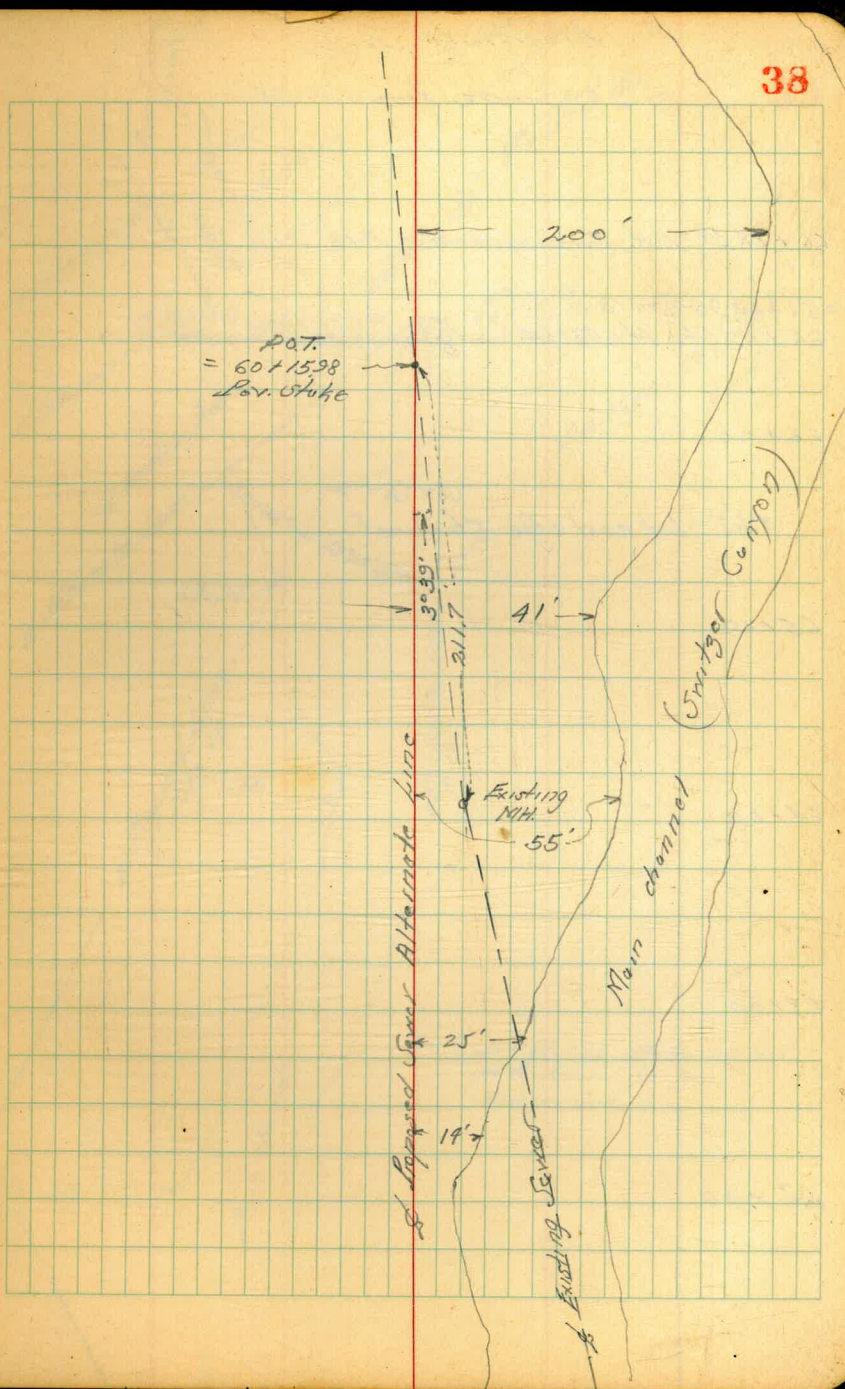 38
200'
P.O.T.
= 60+15.98
Pav. Stake
3°39'
211.7'
41'
(Switzer Canyon)
Existing
M.H.
55'
Main channel
25'
14'
℄ Proposed Sewer Alternate Line
℄ Existing Sewer